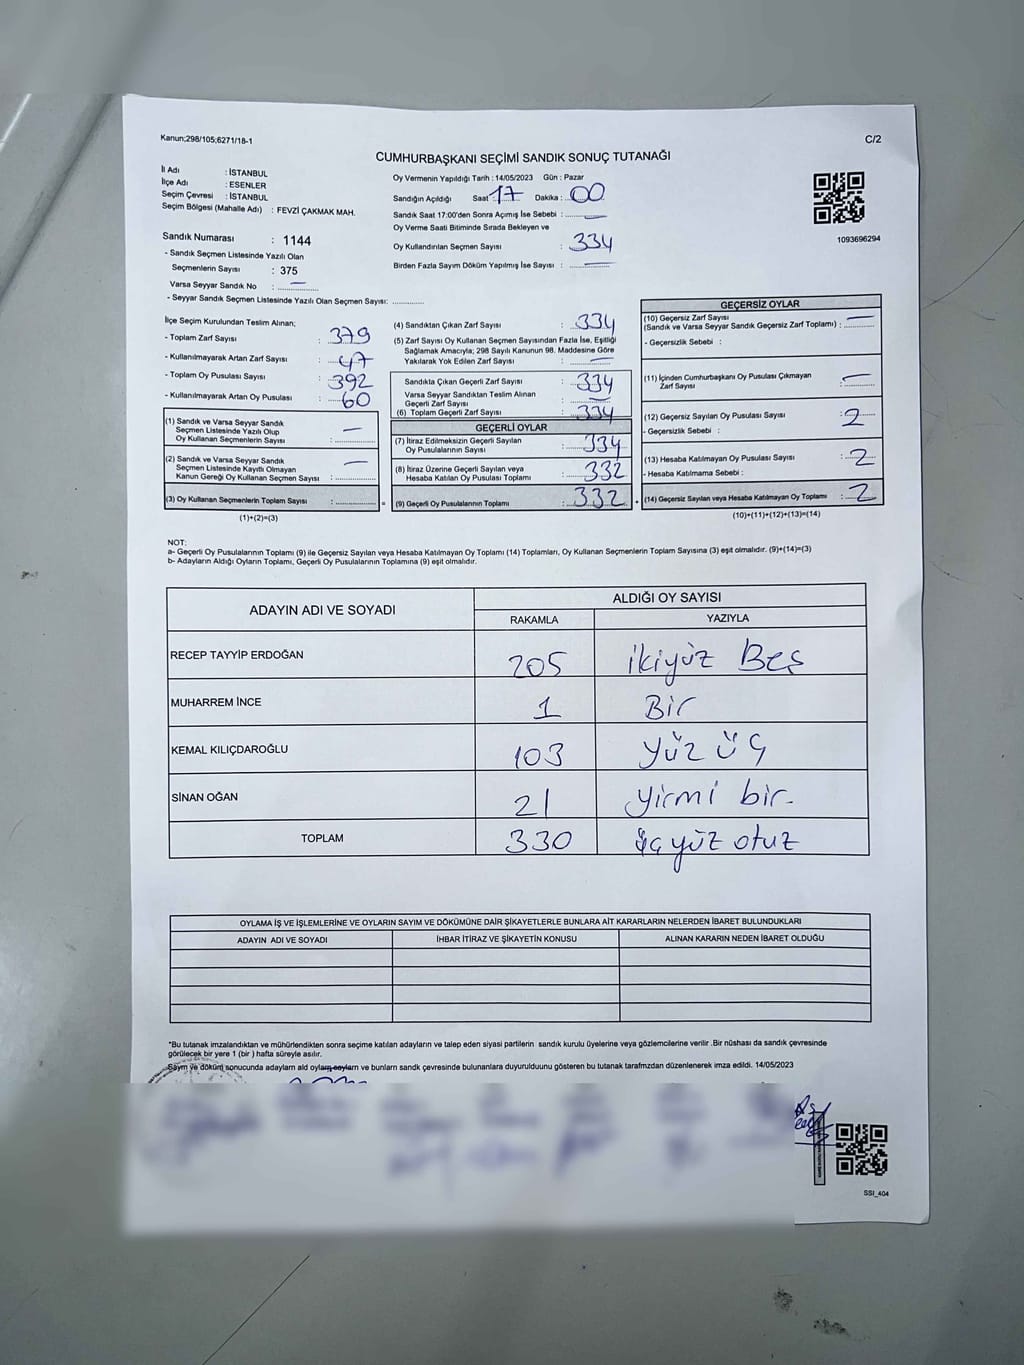 Kanun;298/105;6271/18-1
C/2
CUMHURBAŞKANI SEÇİMİ SANDIK SONUÇ TUTANAĞI
İl Adı : İSTANBUL
İlçe Adı : ESENLER
Seçim Çevresi : İSTANBUL
Seçim Bölgesi (Mahalle Adı) : FEVZİ ÇAKMAK MAH.
Sandık Numarası : 1144
- Sandık Seçmen Listesinde Yazılı Olan
Seçmenlerin Sayısı : 375
Varsa Seyyar Sandık No : —
- Seyyar Sandık Seçmen Listesinde Yazılı Olan Seçmen Sayısı: ..............
Oy Vermenin Yapıldığı Tarih : 14/05/2023 Gün : Pazar
Sandığın Açıldığı Saat : 17 Dakika : 00
Sandık Saat 17:00'den Sonra Açımış İse Sebebi : —
Oy Verme Saati Bitiminde Sırada Bekleyen ve
Oy Kullandırılan Seçmen Sayısı : 334
Birden Fazla Sayım Döküm Yapılmış İse Sayısı : —
1093696294
İlçe Seçim Kurulundan Teslim Alınan;
- Toplam Zarf Sayısı : 379
- Kullanılmayarak Artan Zarf Sayısı : 47
- Toplam Oy Pusulası Sayısı : 392
- Kullanılmayarak Artan Oy Pusulası : 60
(1) Sandık ve Varsa Seyyar Sandık
Seçmen Listesinde Yazılı Olup
Oy Kullanan Seçmenlerin Sayısı : —
(2) Sandık ve Varsa Seyyar Sandık
Seçmen Listesinde Kayıtlı Olmayan
Kanun Gereği Oy Kullanan Seçmen Sayısı : —
(3) Oy Kullanan Seçmenlerin Toplam Sayısı : .............. =
(1)+(2)=(3)
(4) Sandıktan Çıkan Zarf Sayısı : 334
(5) Zarf Sayısı Oy Kullanan Seçmen Sayısından Fazla İse, Eşitliği
Sağlamak Amacıyla; 298 Sayılı Kanunun 98. Maddesine Göre
Yakılarak Yok Edilen Zarf Sayısı : —
Sandıkta Çıkan Geçerli Zarf Sayısı : 334
Varsa Seyyar Sandıktan Teslim Alınan
Geçerli Zarf Sayısı : —
(6) Toplam Geçerli Zarf Sayısı : 334
GEÇERLİ OYLAR
(7) İtiraz Edilmeksizin Geçerli Sayılan
Oy Pusulalarının Sayısı : 334
(8) İtiraz Üzerine Geçerli Sayılan veya
Hesaba Katılan Oy Pusulası Toplamı : 332
(9) Geçerli Oy Pusulalarının Toplamı : 332 +
GEÇERSİZ OYLAR
(10) Geçersiz Zarf Sayısı —
(Sandık ve Varsa Seyyar Sandık Geçersiz Zarf Toplamı) : ..........
- Geçersizlik Sebebi :
(11) İçinden Cumhurbaşkanı Oy Pusulası Çıkmayan
Zarf Sayısı : —
(12) Geçersiz Sayılan Oy Pusulası Sayısı : 2
- Geçersizlik Sebebi :
(13) Hesaba Katılmayan Oy Pusulası Sayısı : 2
- Hesaba Katılmama Sebebi :
(14) Geçersiz Sayılan veya Hesaba Katılmayan Oy Toplamı : 2
(10)+(11)+(12)+(13)=(14)
NOT:
a- Geçerli Oy Pusulalarının Toplamı (9) ile Geçersiz Sayılan veya Hesaba Katılmayan Oy Toplamı (14) Toplamları, Oy Kullanan Seçmenlerin Toplam Sayısına (3) eşit olmalıdır. (9)+(14)=(3)
b- Adayların Aldığı Oyların Toplamı, Geçerli Oy Pusulalarının Toplamına (9) eşit olmalıdır.
ADAYIN ADI VE SOYADI ALDIĞI OY SAYISI
RAKAMLA YAZIYLA
RECEP TAYYİP ERDOĞAN 205 ikiyüz Beş
MUHARREM İNCE 1 Bir
KEMAL KILIÇDAROĞLU 103 yüz üç
SİNAN OĞAN 21 yirmi bir.
TOPLAM 330 üçyüz otuz
OYLAMA İŞ VE İŞLEMLERİNE VE OYLARIN SAYIM VE DÖKÜMÜNE DAİR ŞİKAYETLERLE BUNLARA AİT KARARLARIN NELERDEN İBARET BULUNDUKLARI
ADAYIN ADI VE SOYADI İHBAR İTİRAZ VE ŞİKAYETİN KONUSU ALINAN KARARIN NEDEN İBARET OLDUĞU
*Bu tutanak imzalandıktan ve mühürlendikten sonra seçime katılan adayların ve talep eden siyasi partilerin sandık kurulu üyelerine veya gözlemcilerine verilir .Bir nüshası da sandık çevresinde
görülecek bir yere 1 (bir ) hafta süreyle asılır.
Sayım ve döküm sonucunda adayların ald oyların sayıların ve bunların sandk çevresinde bulunanlara duyurulduunu gösteren bu tutanak tarafmzdan düzenlenerek imza edildi. 14/05/2023
SSI_404